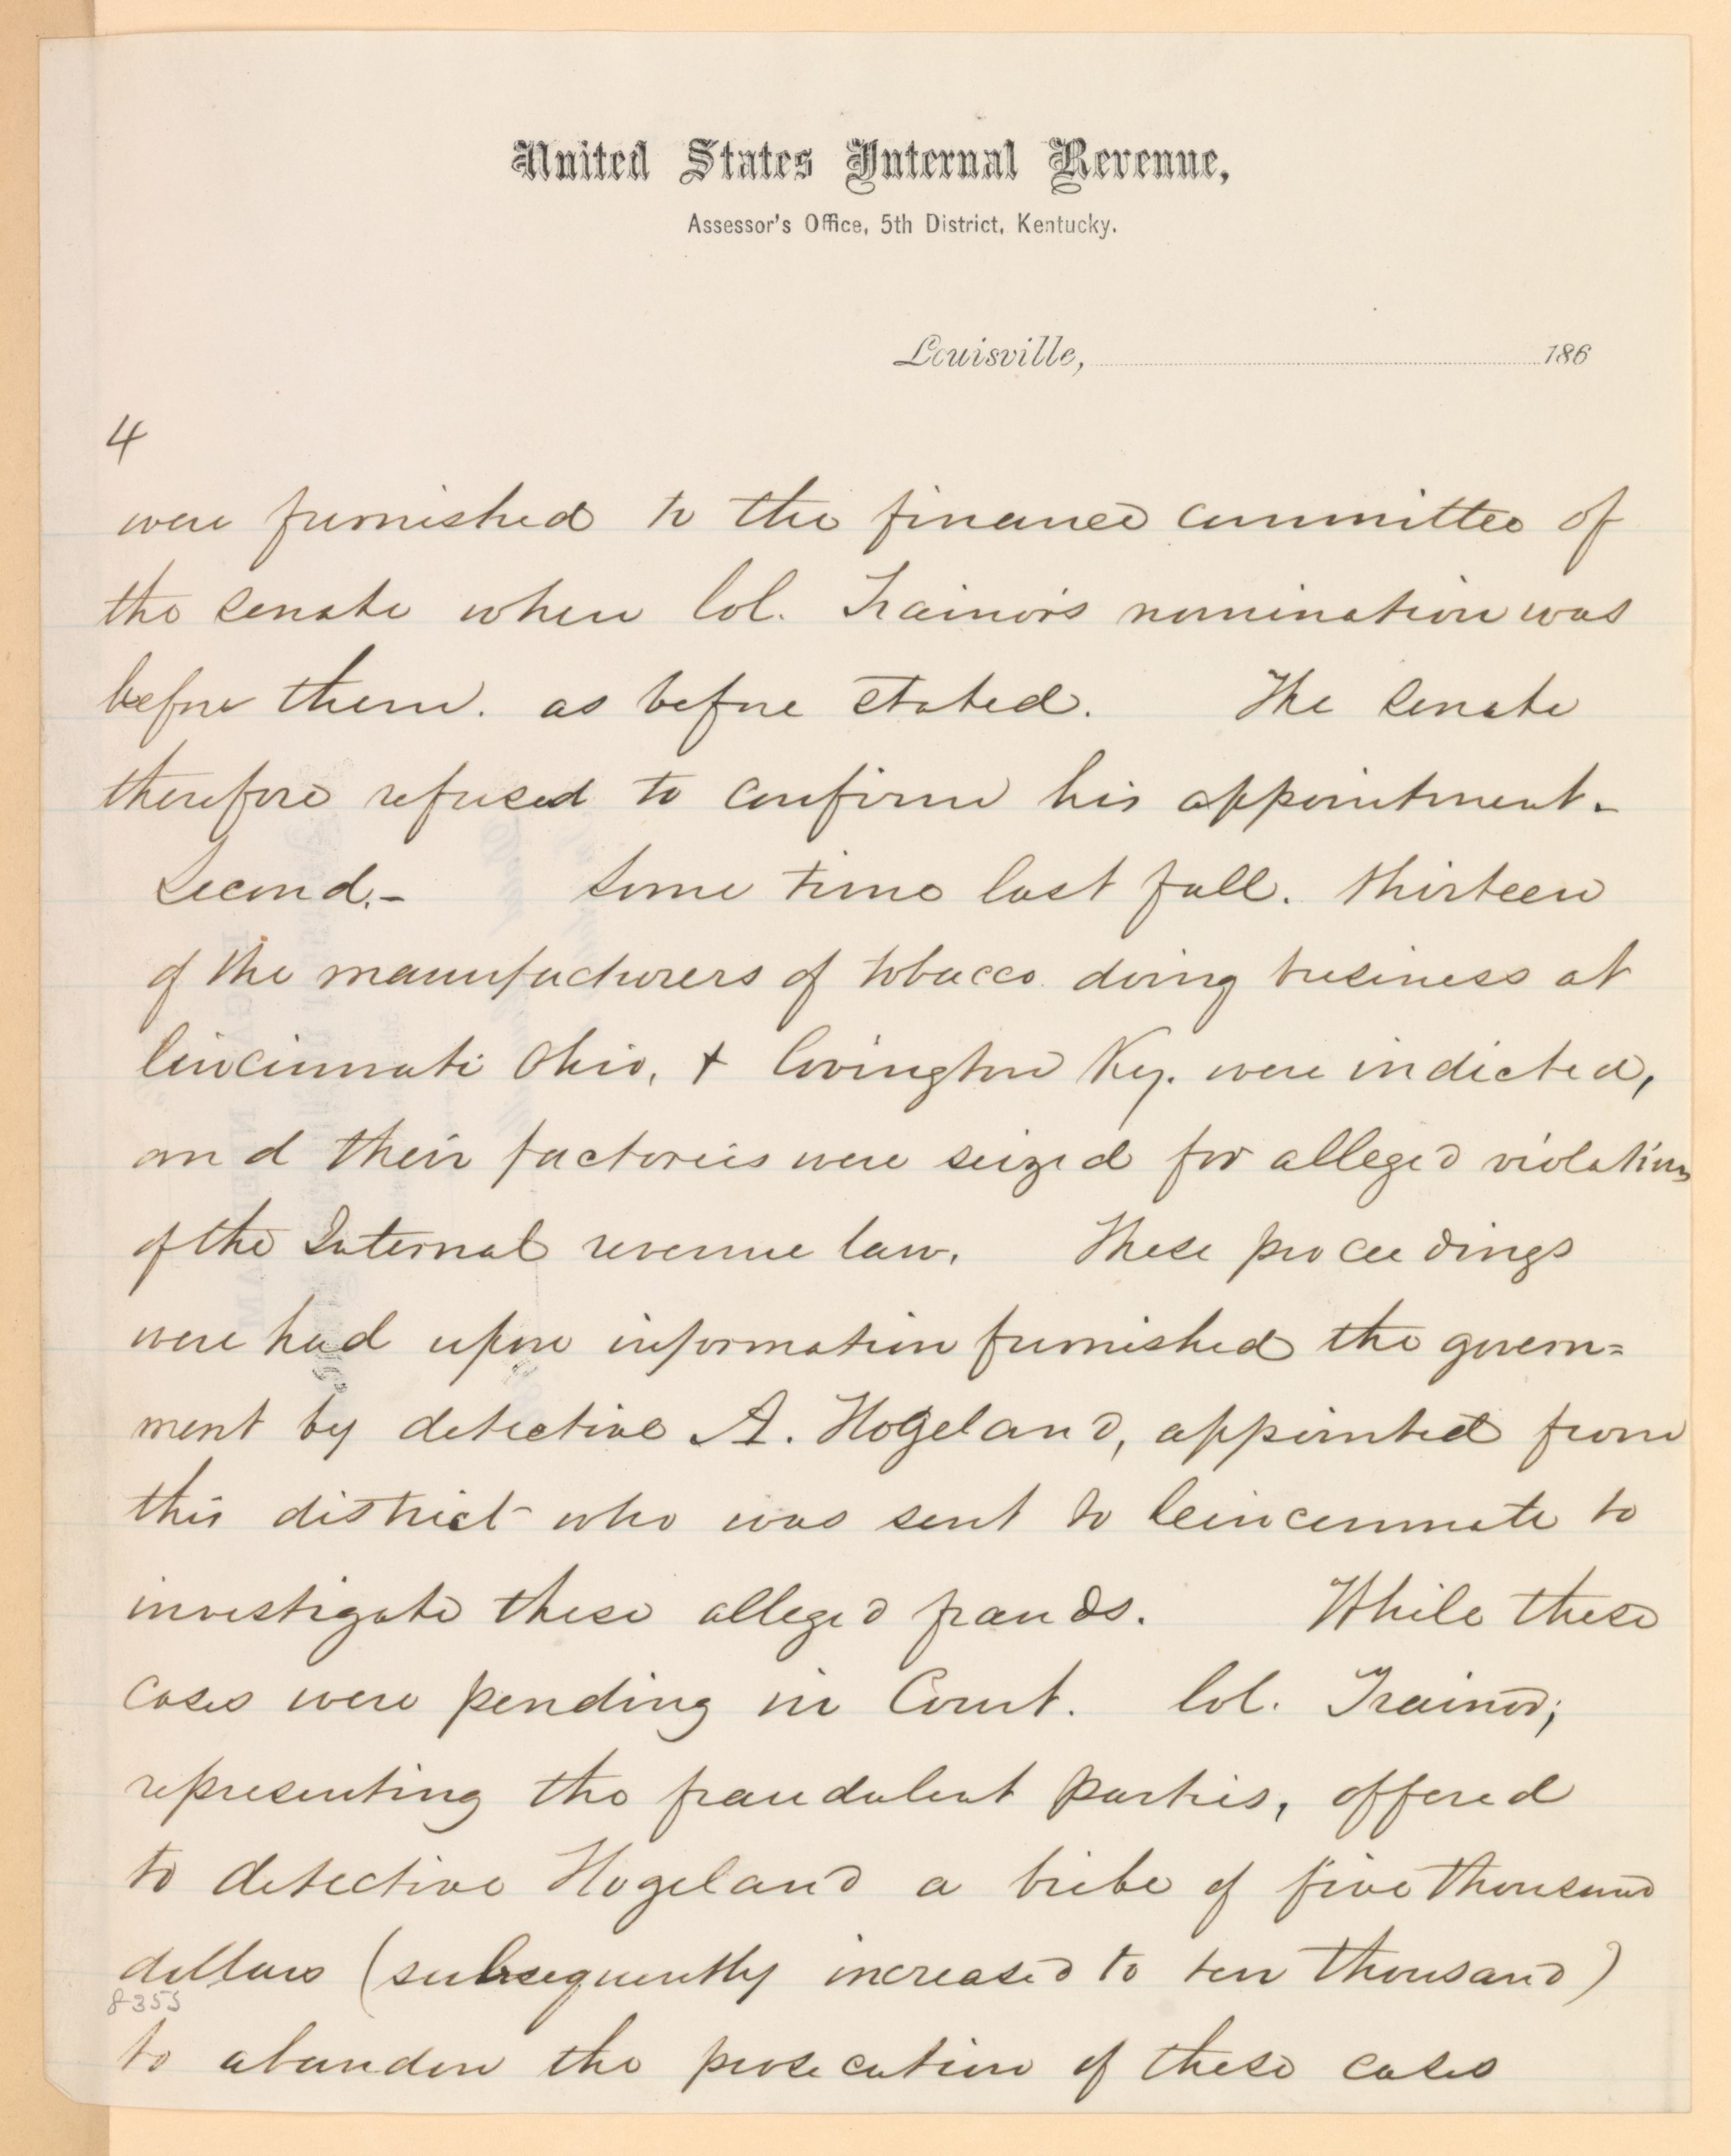 United States Internal Revenue,
Assessor's Office, 5th District, Kentucky.
Louisville, 186
4
were furnished to the finance committee of
the senate when Col. Trainor's nomination was
before them. as before stated. The Senate
therefore refused to confirm his appointment.
Second.- Some time last fall. thirteen
of the manufacturers of tobacco doing business at
Cincinnati Ohio, + Covington Ky. were indicted,
and their factories were seized for alleged violations
of the Internal revenue law. These proceedings
were had upon information furnished the govern=
ment by detective A. Hogeland, appointed from
this district who was sent to Cincinnati to
investigate these alleged frauds. While these
cases were pending in Court. Col. Trainor,
representing the fraudulent parties, offered
to detective Hogeland a bribe of five thousand
dollars (subsequently increased to ten thousand)
8355
to abandon the prosecution of these cases